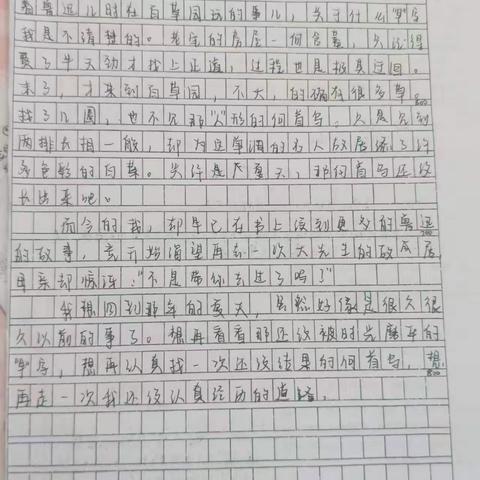 着鲁迅儿时在百草园玩的事儿，关于什么"早"字
我是不清楚的。老宅的房屋一何含蓄，久记得
费了半天劲才找上正道，过程也是极其迂回。
来了，才来到百草园，不大，的确有很多草
800
找了几圈，也不见那"人"形的何首乌。只是见到
两排长相一般，却为这单调的名人故居添了许
多色彩的白菜。或许是尺夏天，那何首乌还没
长出来吧。
而今的我，却早已在书上读到更多的鲁迅
700
的故事，竟开始渴望再去一次大先生的故居，
母亲却惊讶："不是带你去过了吗？"
我想回到那年的夏天，虽然好像是很久很
久以前的事了。想再看看那还没被时光磨平的
"早"字，想再认真找一次还没结果的何首乌，想
800
再走一次我还没认真经历的道路。